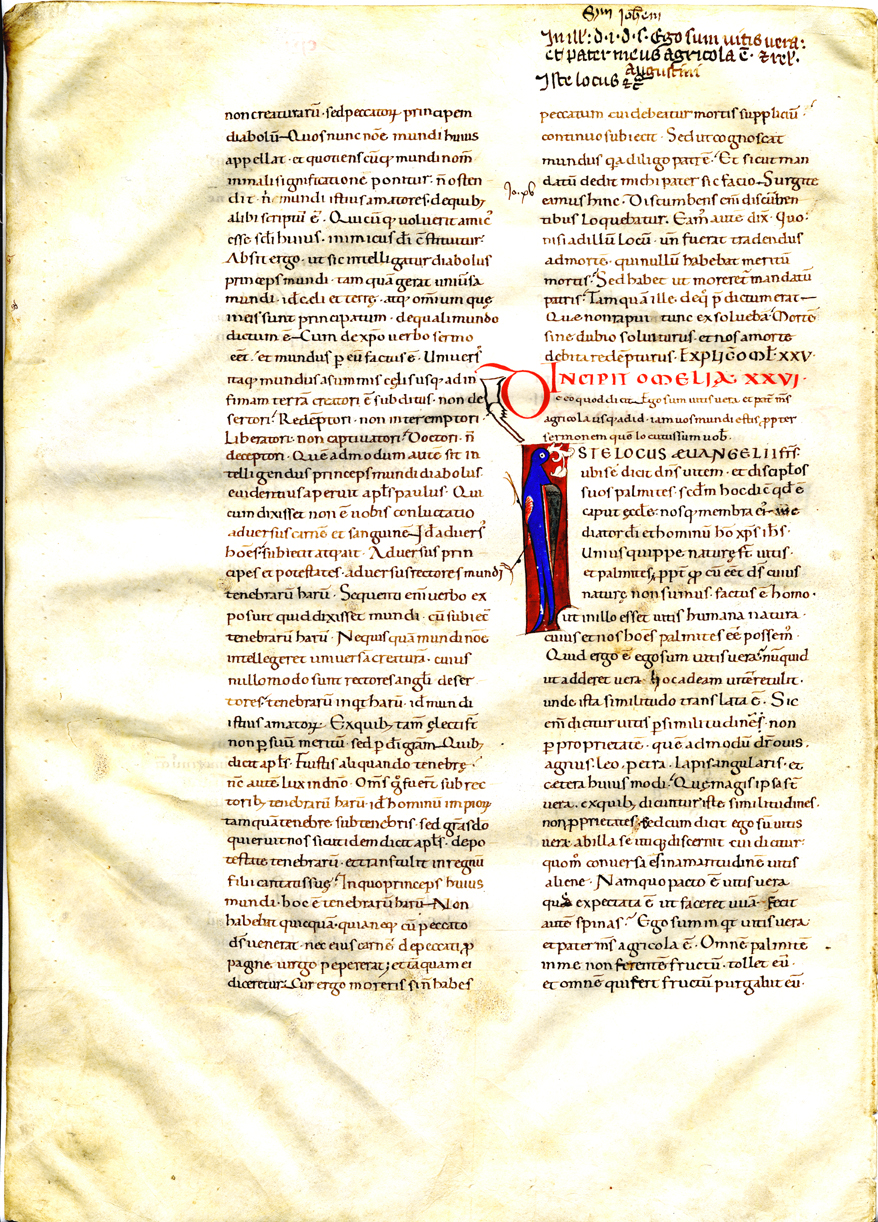 Sm Johem
In ill: d.i.d.s. Ego sum uitis uera:
et pater meus agricola ē. & rel.
Augustini
Iste locus &c
non creaturarū. sed peccatoꝝ principem
diabolū. Quos nunc noīe mundi huius
appellat. et quotienscūq; mundi nom̄
in mali significatione ponitur. n̄ osten
dit. n̄ mundi istius amatores. de quib;
alibi scriptū ē. Quicūq; uoluerit amic᾽
esse sc̄li huius. inimicus dī c̄stituitur.
Absit ergo. ut sic intelligatur diabolus
princeps mundi. tam quā gerat uniūsa
mundi. id ē celi et terrę. atq; om̄ium que
in eis sunt principatum. de quali mundo
dictum ē. Cum de xp̄o uerbo sermo
eēt. et mundus p̄ eū factus ē. Uniuers᾽
itaq; mundus a summis cęlis usq; ad in
fimam terrā creatori ē subditus. non de
sertori. Redēptori. non interemptori.
Liberatori. non captiuatori. Doctori. n̄
deceptori. Quē admodum autē sit in
telligendus princeps mundi diabolus.
euidentius aperuit apl̄s paulus. Qui
cum dixisset non ē uobis conluctatio
aduersus carnē et sanguinē. Id aduers᾽
hoēs. subiecit atq; ait. Aduersus prin
cipes et potestates. aduersus rectores mundi
tenebrarū harū. Sequenti em̄ uerbo ex
posuit quid dixisset mundi. cū subiec̄
tenebrarū harū. Ne quisquā mundi noē
intellegeret uniuersā creaturā. cuius
nullo modo sunt rectores angl̄i deser
tores. tenebrarū inqt harū. id ē mundi
istius amatoꝝ. Ex quib; tam̄ electi st̄
non p̄ suū meritū. sed p dī grām. Quib;
dicit apl̄s. Fuistis aliquando tenebrę.
nc̄ autē lux in dnō. Om̄s g̊ fuer̄t sub rec
torib; tenebrarū harū. id ē hominū impioꝝ
tamquā tenebre sub tenebris. sed grās dō
qui eruit nos sicut idem dicit apl̄s. de po
testate tenebrarū. et transtulit in regnū
filii caritatis suę. In quo princeps huius
mundi. hoc ē tenebrarū harū. Non
habebat quicquā. quia neq; cū peccato
ds̄ uenerat. nec eius carnē de peccati p̄
pagine uirgo pepererat; et tāquam ei
diceretur. Cur ergo moreris si n̄ habes
peccatum cui debeatur mortis suppliciū.
continuo subiecit. Sed ut cognoscat
mundus q̄a diligo patrē. Et sicut man
datū dedit michi pater sic facio. Surgite
eamus hinc. Discumbens em̄ discūben
tibus loquebatur. Eam̄ autē dix̄. Quo.
nisi ad illū locū. un̄ fuerat tradendus
ad mortē. qui nullū habebat meritū
mortis. Sed habebat ut moreret mandatū
patris. Tamquā ille. de q̊ p̄dictum erat
Que non rapui tunc exsolueba. Mortē
sine dubio soluiturus. et nos a morte
debita redēpturus. EXPLIC̄ OM̄L. XXV.
INCIPIT OMELIA. XXVI.
De eo quod dicit. Ego sum uitis uera. et pat̄ ms̄
agricola usq; ad id. iam uos mundi estis. ppter
sermonem quē locutus sum uob̄.
ISTE LOCUS ÆUANGELII FR̄S.
ubi se dicit dn̄s uitem. et discipl̄os
suos palmites. scdm̄ hoc dic̄ qd̄ ē
caput ecclē. nosq; membra ei᾽. me
diator dī et hominū ho xp̄s ihs̄.
Unius quippe naturę st̄ uitis.
et palmites. ppt̄ q̄ cū eēt ds̄ cuius
naturę non sumus. factus ē homo.
ut in illo esset uitis humana natura.
cuius et nos hoēs palmites eē possem᾽.
Quid ergo ē ego sum uitis uera. nūquid
ut adderet uera. hoc ad eam uitē retulit.
unde ista similitudo translata ē. Sic
em̄ dicitur uitis p similitudinē. non
p proprietatē. quē admodū dr̄ ouis.
agnus. leo. petra. lapis angularis. et
cætera huiusmodi. Que magis ipsa st̄
uera. ex quib; dicuntur iste similitudines.
non pprietates. Sed cum dicit ego sū uitis
uera. ab illa se utiq; discernit cui dicitur.
quom̊ conuersa es in amaritudinē uitis
aliene. Nam quo pacto ē uitis uera
quę expectata ē ut faceret uuā. fecit
autē spinas. Ego sum inqt uitis uera.
et pater ms̄ agricola ē. Omnē palmitē
in me non ferentē fructū. tollet eū.
et omnē qui fert fructū purgabit eū.